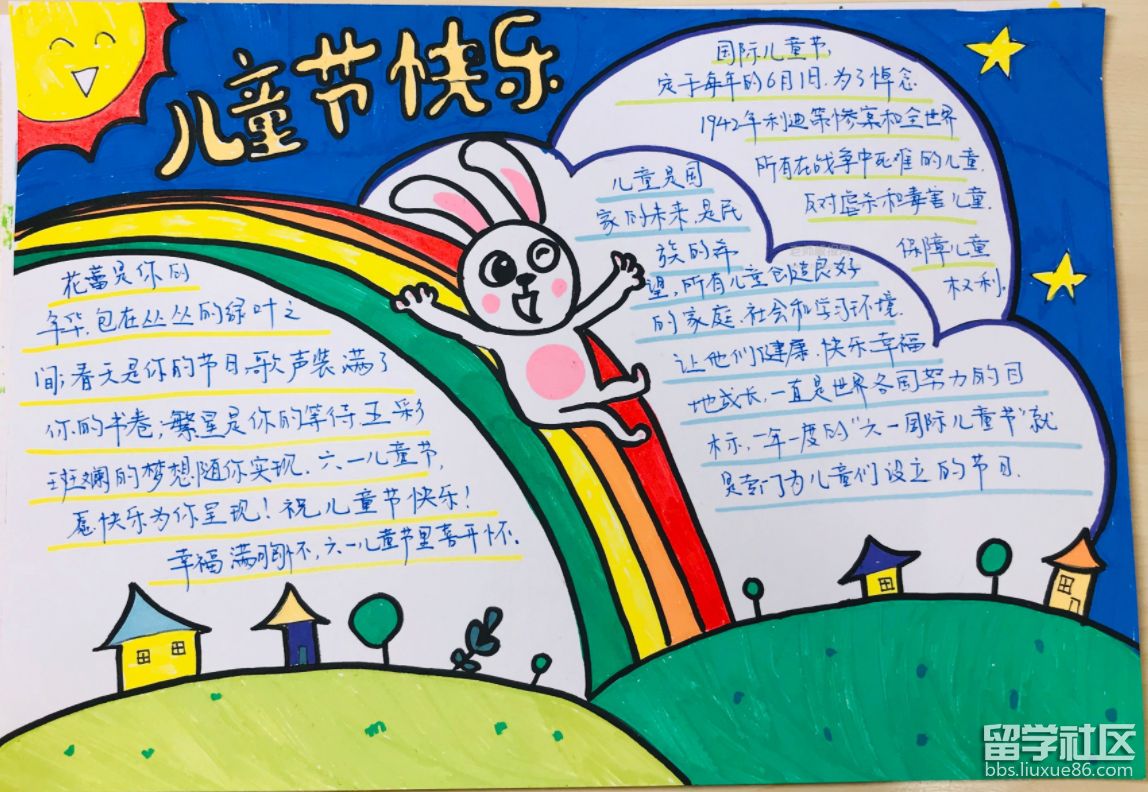 儿童节快乐
国际儿童节,
定于每年的6月1日.为了悼念
1942年利迪策惨案和全世界
所有在战争中死难的儿童,
反对虐杀和毒害儿童,
保障儿童
权利.
儿童是国
家的未来,是民
族的希
望,所有儿童创造良好
的家庭、社会和学习环境.
让他们健康、快乐幸福
地成长,一直是世界各国努力的目
标,一年一度的"六一国际儿童节"就
是专门为儿童们设立的节日.
花蕾是你的
年华,包在丛丛的绿叶之
间;春天是你的节日,歌声装满了
你的书卷;繁星是你的等待,五彩
斑斓的梦想随你实现.六一儿童节,
愿快乐为你呈现!祝儿童节快乐!
幸福满胸怀,六一儿童节里喜开怀.
留学社区
bbs.liuxue86.com